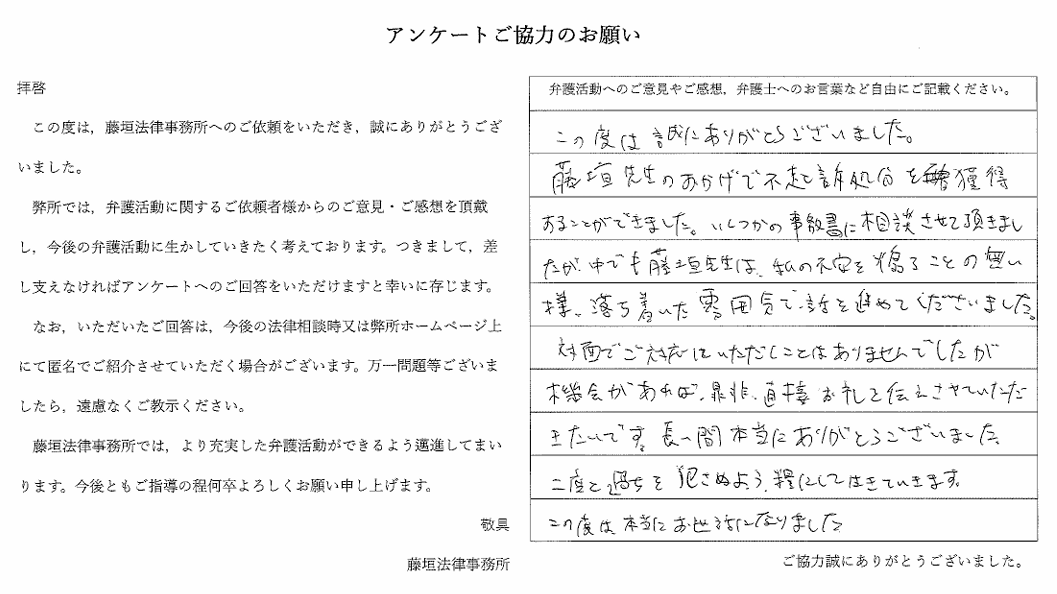 アンケートご協力のお願い
拝啓
この度は，藤垣法律事務所へのご依頼をいただき，誠にありがとうござ
いました。
弊所では，弁護活動に関するご依頼者様からのご意見・ご感想を頂戴
し，今後の弁護活動に生かしていきたく考えております。つきまして，差
し支えなければアンケートへのご回答をいただけますと幸いに存じます。
なお，いただいたご回答は，今後の法律相談時又は弊所ホームページ上
にて匿名でご紹介させていただく場合がございます。万一問題等ございま
したら，遠慮なくご教示ください。
藤垣法律事務所では，より充実した弁護活動ができるよう邁進してまい
ります。今後ともご指導の程何卒よろしくお願い申し上げます。
敬具
藤垣法律事務所
弁護活動へのご意見やご感想，弁護士へのお言葉など自由にご記載ください。
この度は誠にありがとうございました。
藤垣先生のおかげで不起訴処分を獲得
することができました。いくつかの事務書に相談させて頂きまし
たが、中でも藤垣先生は、私の不安を煽ることの無い
様、落ち着いた雰囲気で話を進めてくださいました。
対面でご対応はいただくことはありませんでしたが
機会があれば、是非、直接お礼を伝えさせていただ
きたいです。長い間本当にありがとうございました。
二度と過ちを犯さぬよう、糧にして
いきます。
この度は、本当にお世話になりました
ご協力誠にありがとうございました。